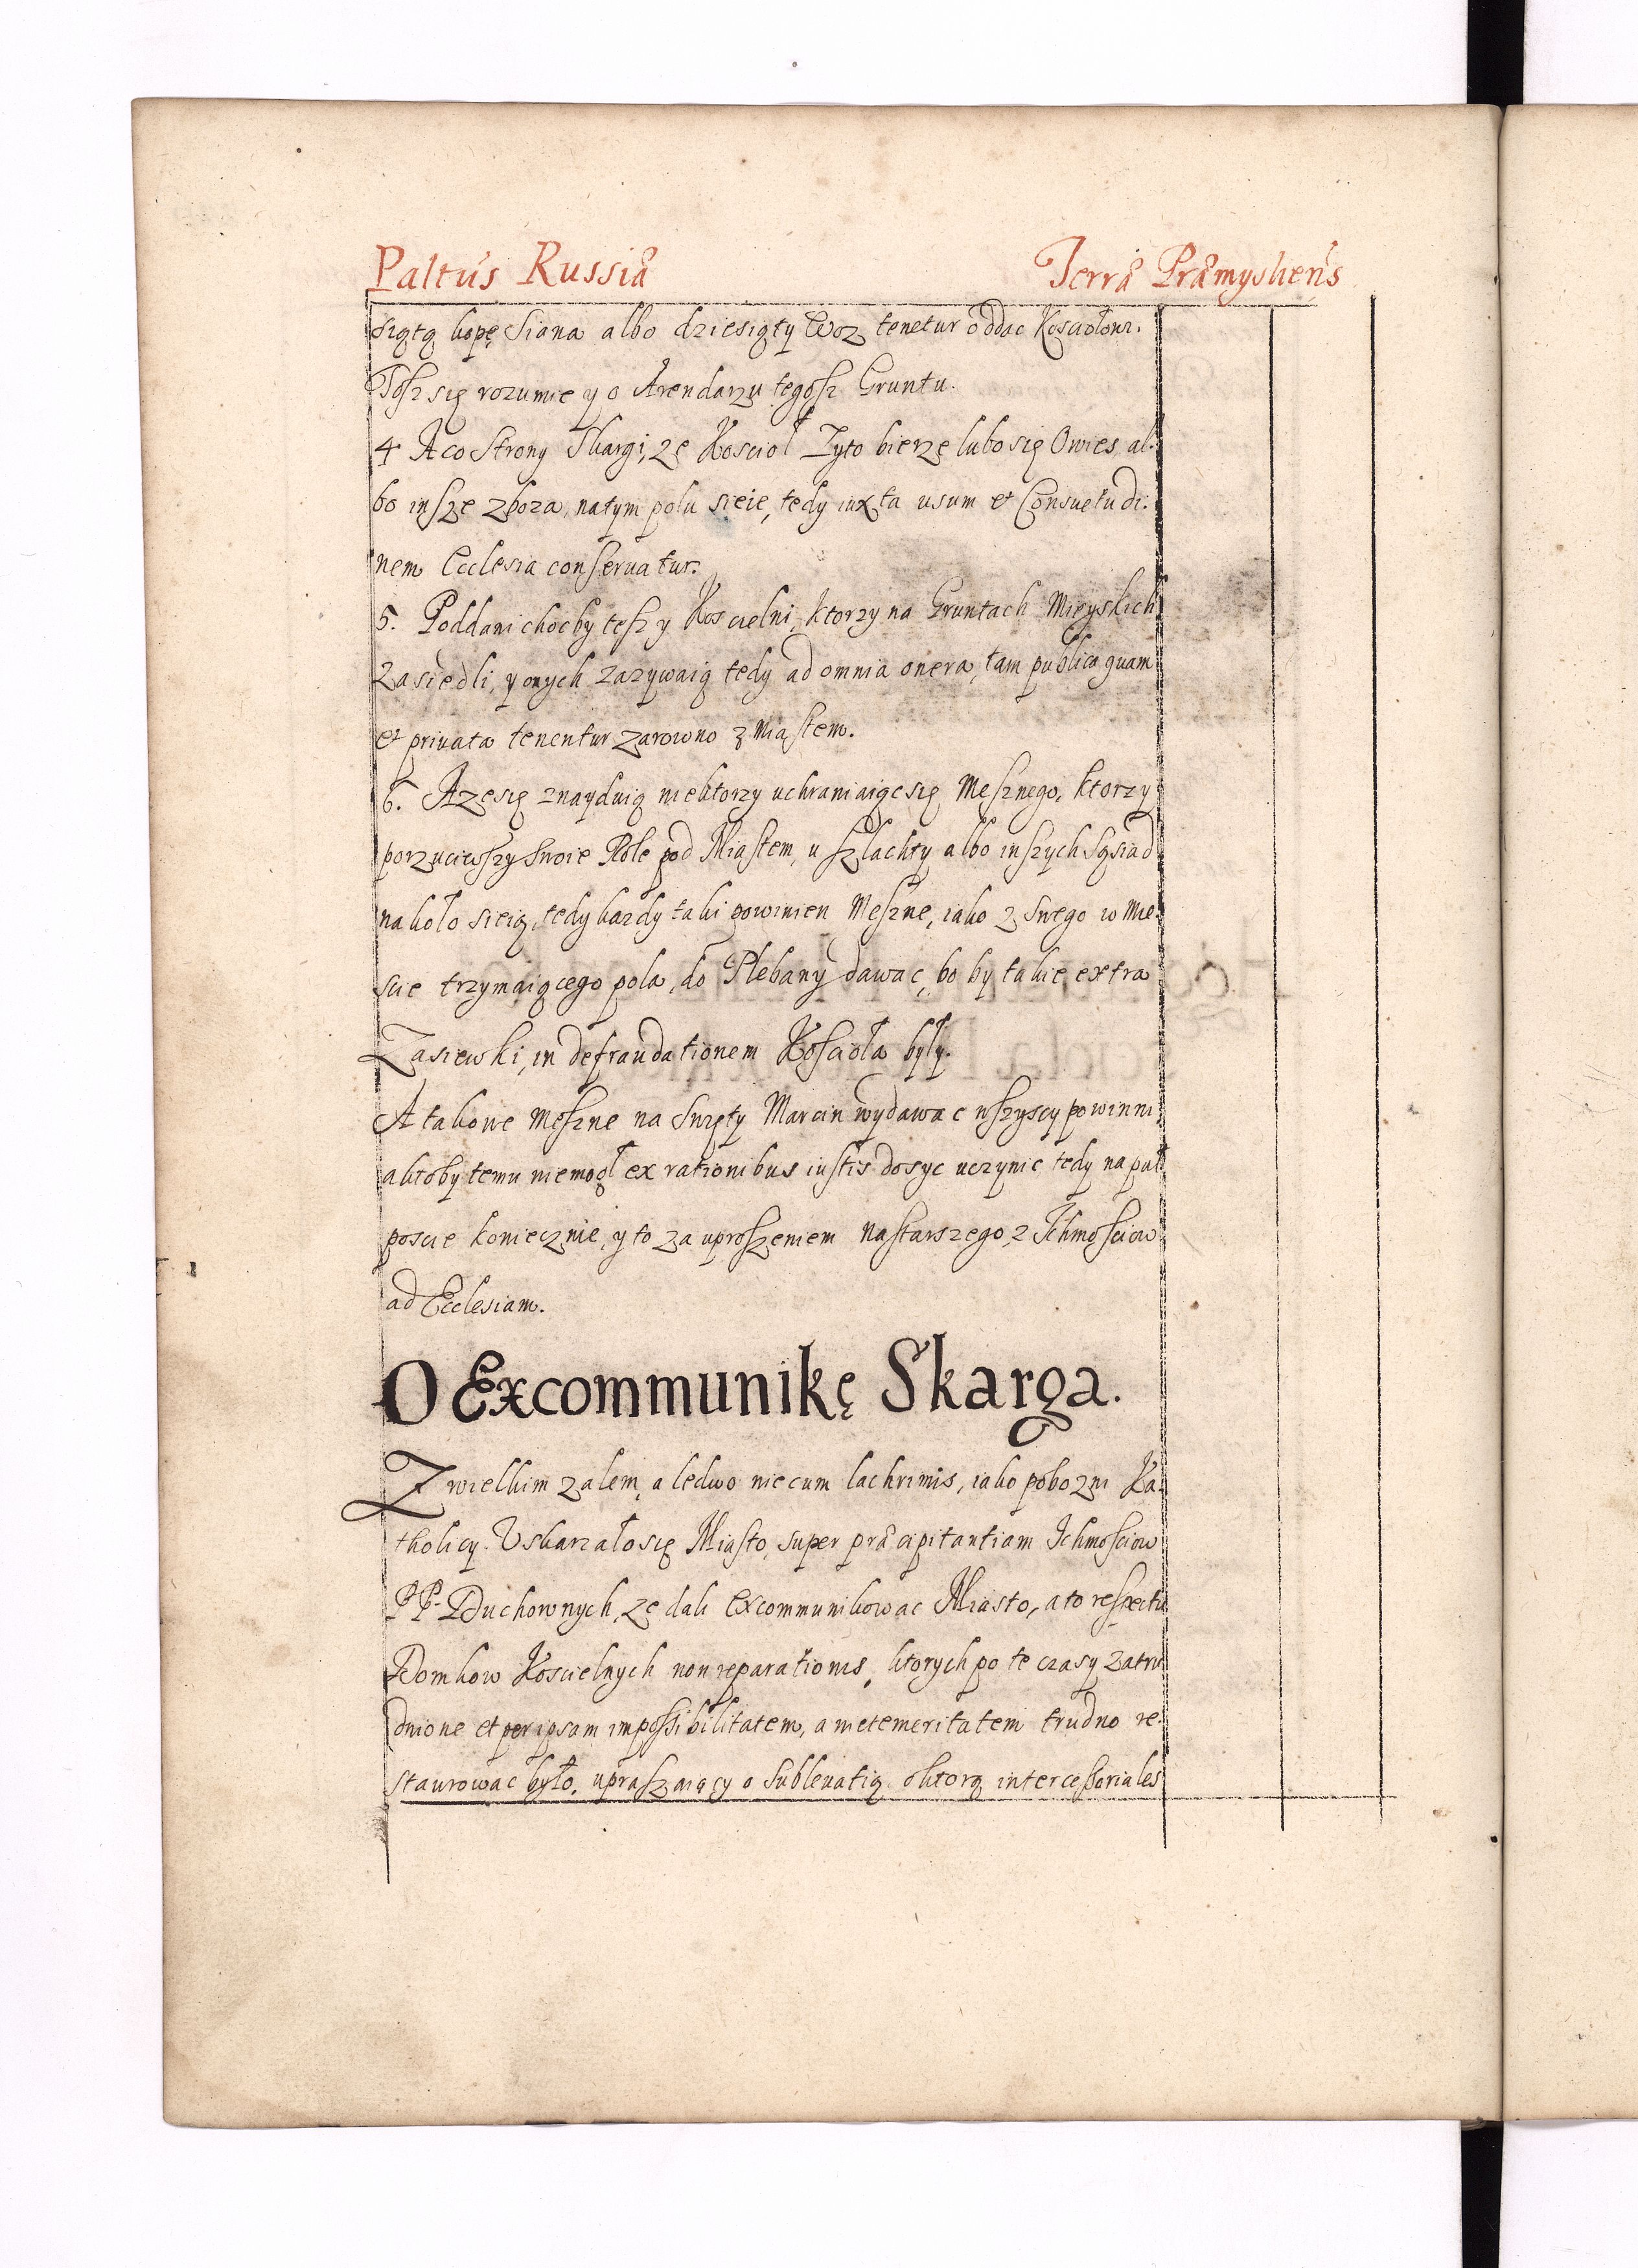 Paltus Russiæ Terræ Præmyslien̄s
siątą kopę Siana albo dziesiąty Woz tenetur oddac Kosciołowi.
Tosz się rozumie y o Arendarzu tegosz Gruntu.
4 A co strony Skargi, ze Kosciol Zyto bierze lubo się Owies, al-
bo insze zboza, na tym polu sieie, tedy iuxta usum et Consuetudi:
nem Ecclesia conseruatur.
5. Poddani chocby tesz y Koscielni, ktorzy na Gruntach Mieyskich
Zasiedli, y onych zazywaią tedy ad omnia onera, tam publica quam
et priuata tenentur zarowno z Miastem.
6. A ze się znayduią niektorzy uchraniaiąc się Mesznego, ktorzy
porzuciwszy swoie Role pod Miastem, u szlachty albo inszych Sąsiad
nakoło sieią, tedy kazdy taki powinien Meszne, iako z swego w Mie-
scie trzymaiącego pola, do Plebany dawac, bo by takie extra
Zasiewki, in defraudationem Kosciola były.
A takowe Meszne na Swięty Marcin wydawac wszyscy powinni,
a ktoby temu niemogł ex rationibus iustis dosyc uczynic, tedy na puł
poscie koniecznie, y to za uproszeniem nastarszego, z Ichmosciow
ad Ecclesiam.
O Excommunikę Skarga.
Z wielkim zalem, a ledwo nie cum lachrimis, iako pobozni Ka-
tholicy. Uskarzało się Miasto, super præcipitantiam Ichmosciow
PP. Duchownych, ze dali Excommunikowac Miasto, a to respectu
Domkow Koscielnych non reparationis, ktorych po te czasy zatru
dnione et per ipsam impossibilitatem, a nie temeritatem trudno re-
staurowac było, upraszaiący o Subleuatią o ktorą intercessoriales